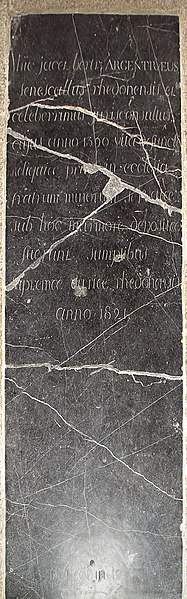 Hic jacet bertr. ARGENTRÆUS
senescallus rhedonensis et
celeberrimus jurisconsultus
cujus anno 1590 vita functi
reliquiæ prius in ecclesia
fratrum minorum
sub hoc marmore depositæ
fuerunt sumptibus
supremæ curiæ rhedonensis
anno 1821